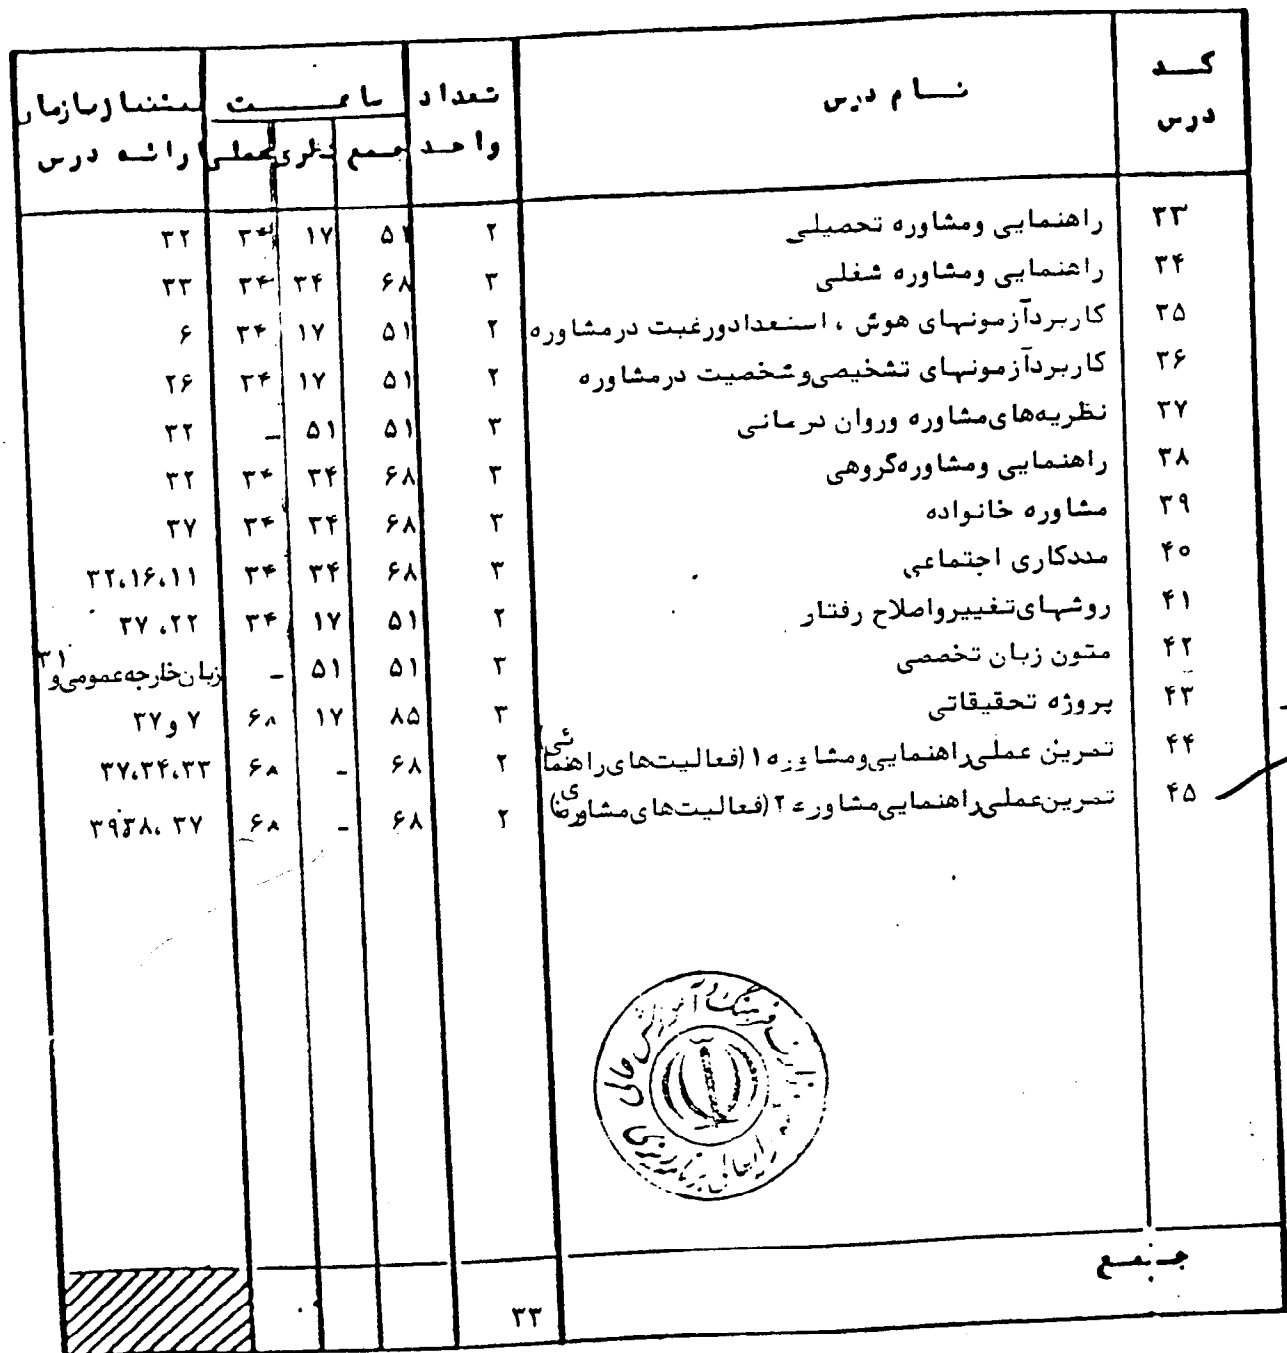 کد درس | نام درس | تعداد واحد | ساعت: جمع | نظری | عملی | پیشنیاز یازمان ارائه درس
۳۳ | راهنمایی ومشاوره تحصیلی | ۲ | ۵۱ | ۱۷ | ۳۴ | ۳۲
۳۴ | راهنمایی ومشاوره شغلی | ۳ | ۶۸ | ۳۴ | ۳۴ | ۳۳
۳۵ | کاربردآزمونهای هوش ، استعدادورغبت درمشاوره | ۲ | ۵۱ | ۱۷ | ۳۴ | ۶
۳۶ | کاربردآزمونهای تشخیصی‌وشخصیت درمشاوره | ۲ | ۵۱ | ۱۷ | ۳۴ | ۲۶
۳۷ | نظریه‌های‌مشاوره وروان درمانی | ۳ | ۵۱ | ۵۱ | _ | ۳۲
۳۸ | راهنمایی ومشاوره‌گروهی | ۳ | ۶۸ | ۳۴ | ۳۴ | ۳۲
۳۹ | مشاوره خانواده | ۳ | ۶۸ | ۳۴ | ۳۴ | ۳۷
۴۰ | مددکاری اجتماعی | ۳ | ۶۸ | ۳۴ | ۳۴ | ۱۱،۱۶،۳۲
۴۱ | روشهای‌تغییرواصلاح رفتار | ۲ | ۵۱ | ۱۷ | ۳۴ | ۲۲، ۳۷
۴۲ | متون زبان تخصصی | ۳ | ۵۱ | ۵۱ | _ | زبان‌خارجه‌عمومی‌و ۳۱
۴۳ | پروژه تحقیقاتی | ۳ | ۸۵ | ۱۷ | ۶۸ | ۷ و۳۷
۴۴ | تمرین عملی‌راهنمایی‌ومشاوره ۱ (فعالیت‌های‌راهنمائی) | ۲ | ۶۸ | - | ۶۸ | ۳۳،۳۴،۳۷
۴۵ | تمرین‌عملی‌راهنمایی‌مشاوره ۲ (فعالیت‌های‌مشاوره‌ای) | ۲ | ۶۸ | - | ۶۸ | ۳۷ ،۳۸،۳۹
وزارت فرهنگ و آموزش عالی
شورایعالی برنامه‌ریزی
جمع
۳۳